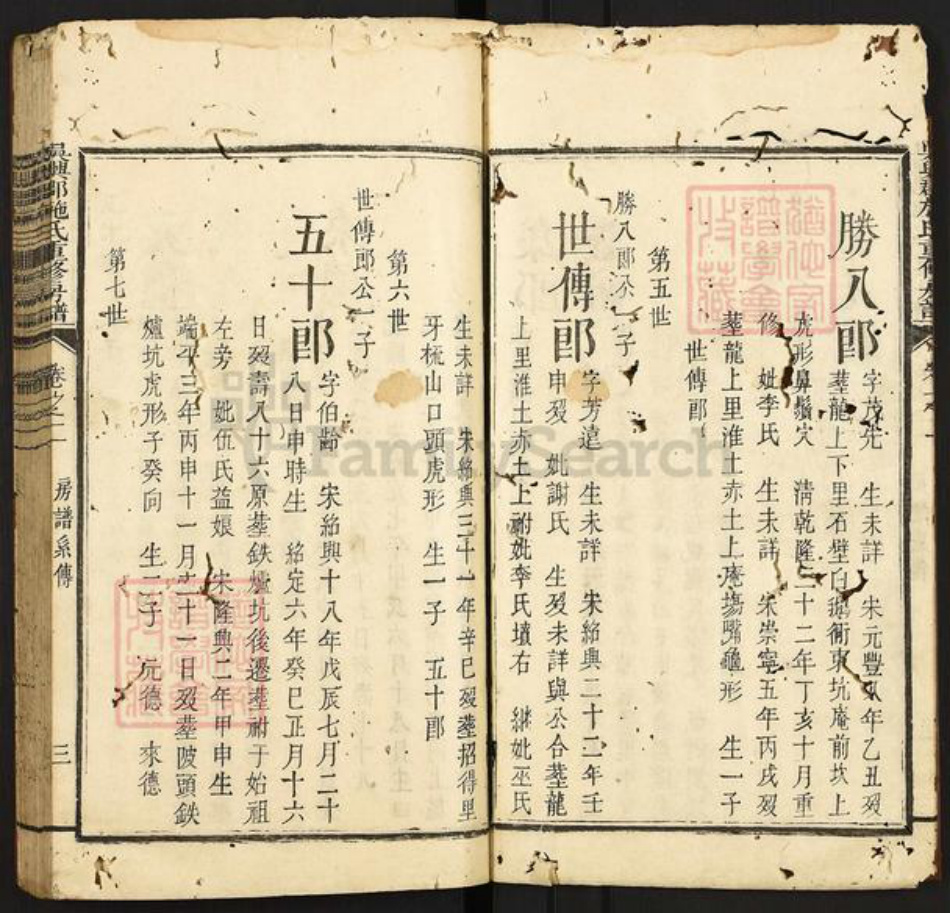 勝八郎 字茂先 生未詳 宋元豐八年乙丑歿
塟龍上下里石壁白 衝東坑庵前坎上
虎形鼻鬚穴 清乾隆三十二年丁亥十月重
修 妣李氏 生未詳 宋崇寧五年丙戌歿
塟龍上里淮土赤土上庵塲嘴龜形 生一子
世傳郎
第五世
勝八郎公一子
世傳郎 字芳遠 生未詳 宋紹興二十二年壬
申歿 妣謝氏 生歿未詳與公合塟龍
上里淮土赤土上祔妣李氏墳右 継妣巫氏
生未詳 宋紹興三十一年辛巳歿塟招得里
牙梳山口頭虎形 生一子 五十郎
第六世
世傳郎公一子
五十郎 字伯齡 宋紹興十八年戊辰七月二十
八日申時生 紹定六年癸巳正月十六
日歿壽八十六原塟鉄爐坑後遷塟祔于始祖
左旁 妣伍氏益娘 宋隆興二年甲申生
端平三年丙申十一月二十一日歿塟陂頭鉄
爐坑虎形子癸向 生二子 元德 來德
第七世
吳興郡施氏重修房譜 卷之二 房譜系傳 三
FamilySearch